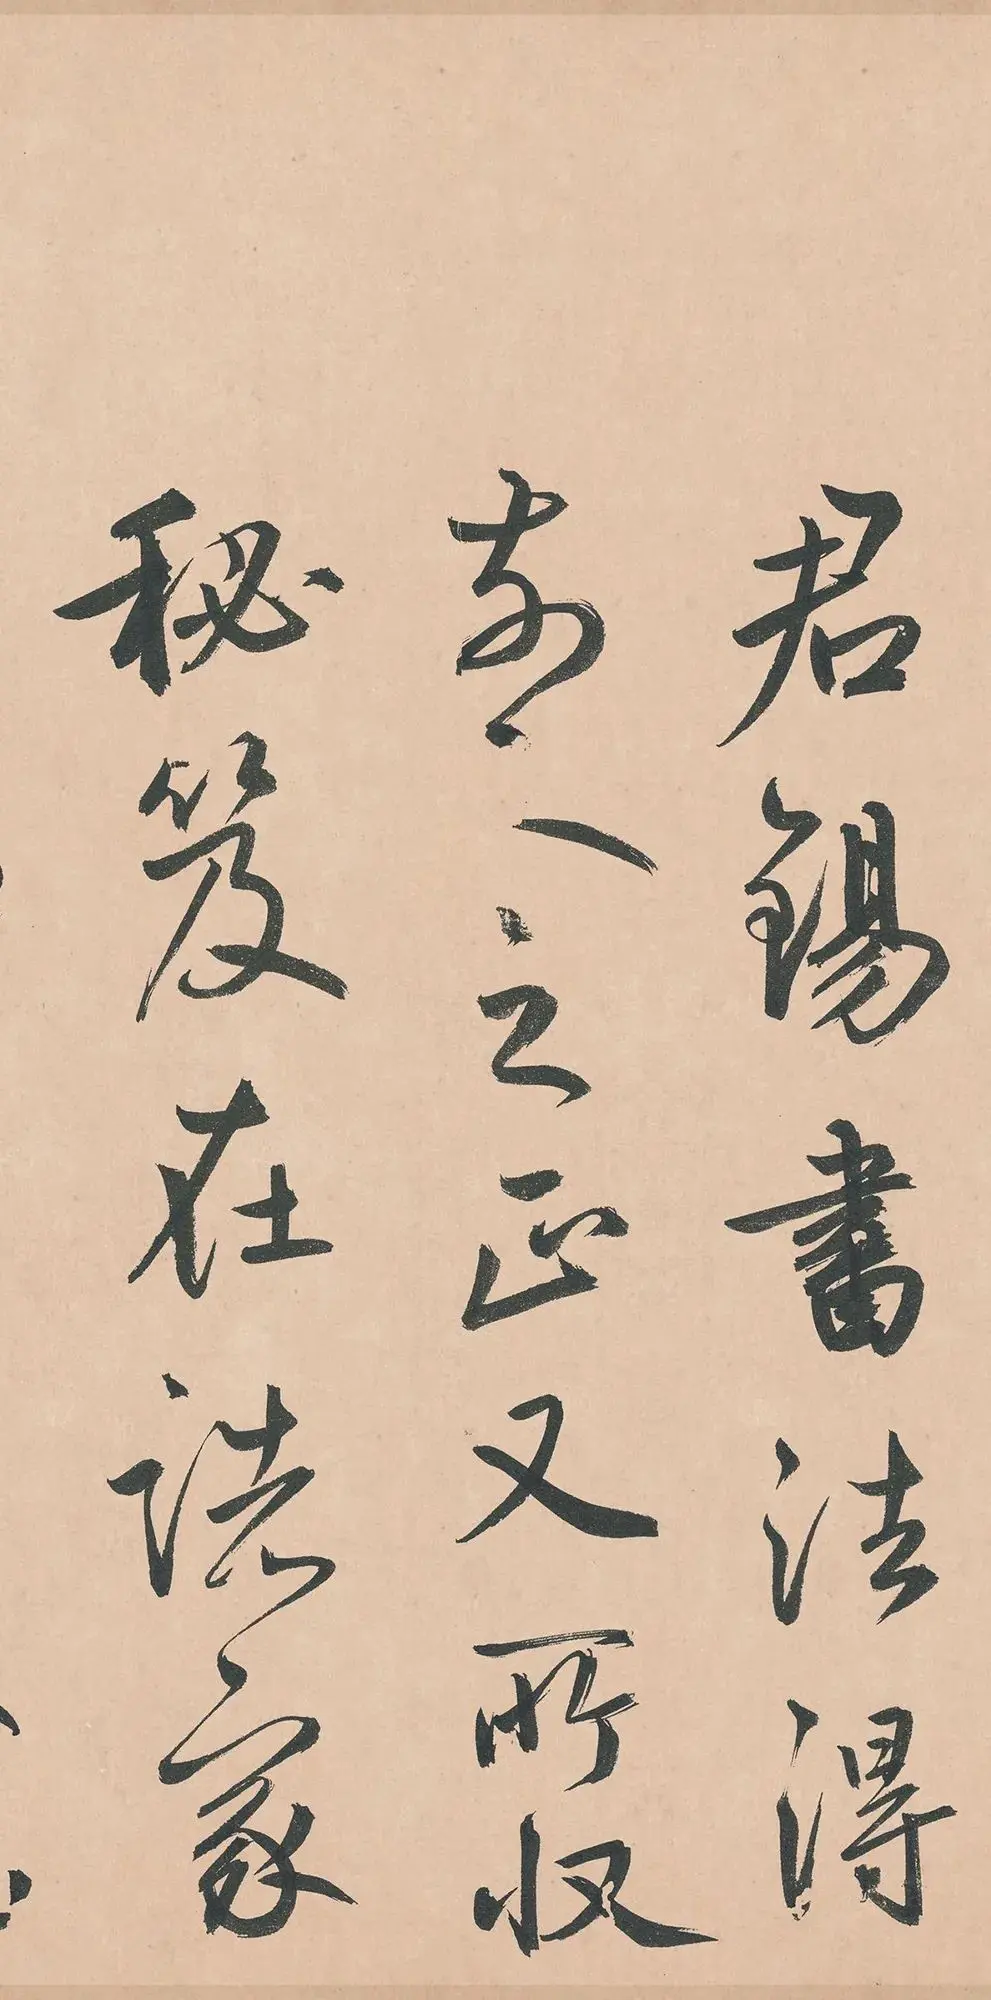 君錫書法得
前人之正又所收
秘笈在諸家